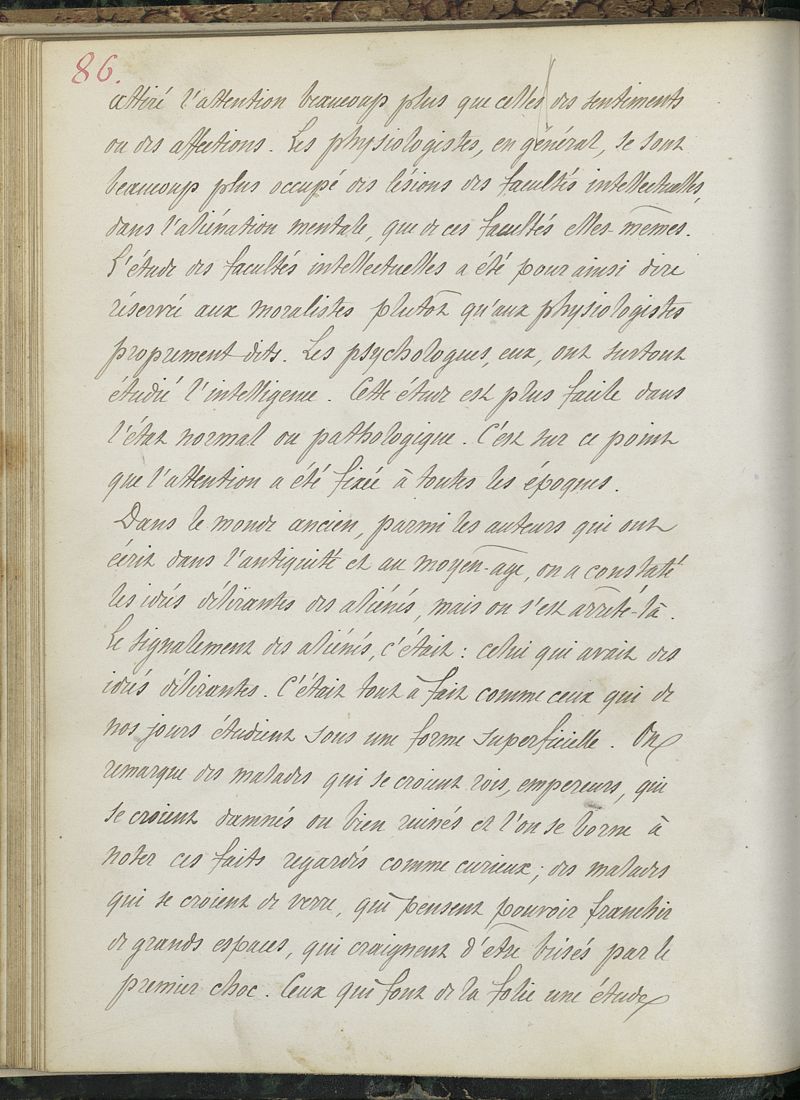 86.
attiré l'attention beaucoup plus que celles des sentiments
ou des affections. Les physiologistes, en général, se sont
beaucoup plus occupé des lésions des facultés intellectuelles,
dans l'aliénation mentale, que de ces facultés elles-mêmes.
L'étude des facultés intellectuelles a été pour ainsi dire
réservée aux moralistes plutôt qu'aux physiologistes
proprement dits. Les psychologues, eux, ont surtout
étudié l'intelligence. Cette étude est plus facile dans
l'état normal ou pathologique. C'est sur ce point
que l'attention a été fixée à toutes les époques.
Dans le monde ancien, parmi les auteurs qui ont
écrit dans l'antiquité et au moyen-âge, on a constaté
les idées délirantes des aliénés, mais on s'est arrêté-là.
Le signalement des aliénés, c'était : celui qui avait des
idées délirantes. C'était tout à fait comme ceux qui de
nos jours étudient sous une forme superficielle. On
remarque des malades qui se croient rois, empereurs, qui
se croient damnés ou bien ruinés et l'on se borne à
noter ces faits regardés comme curieux ; des malades
qui se croient de verre, qui pensent pouvoir franchir
de grands espaces, qui craignent d'être brisés par le
premier choc. Ceux qui font de la folie une étude